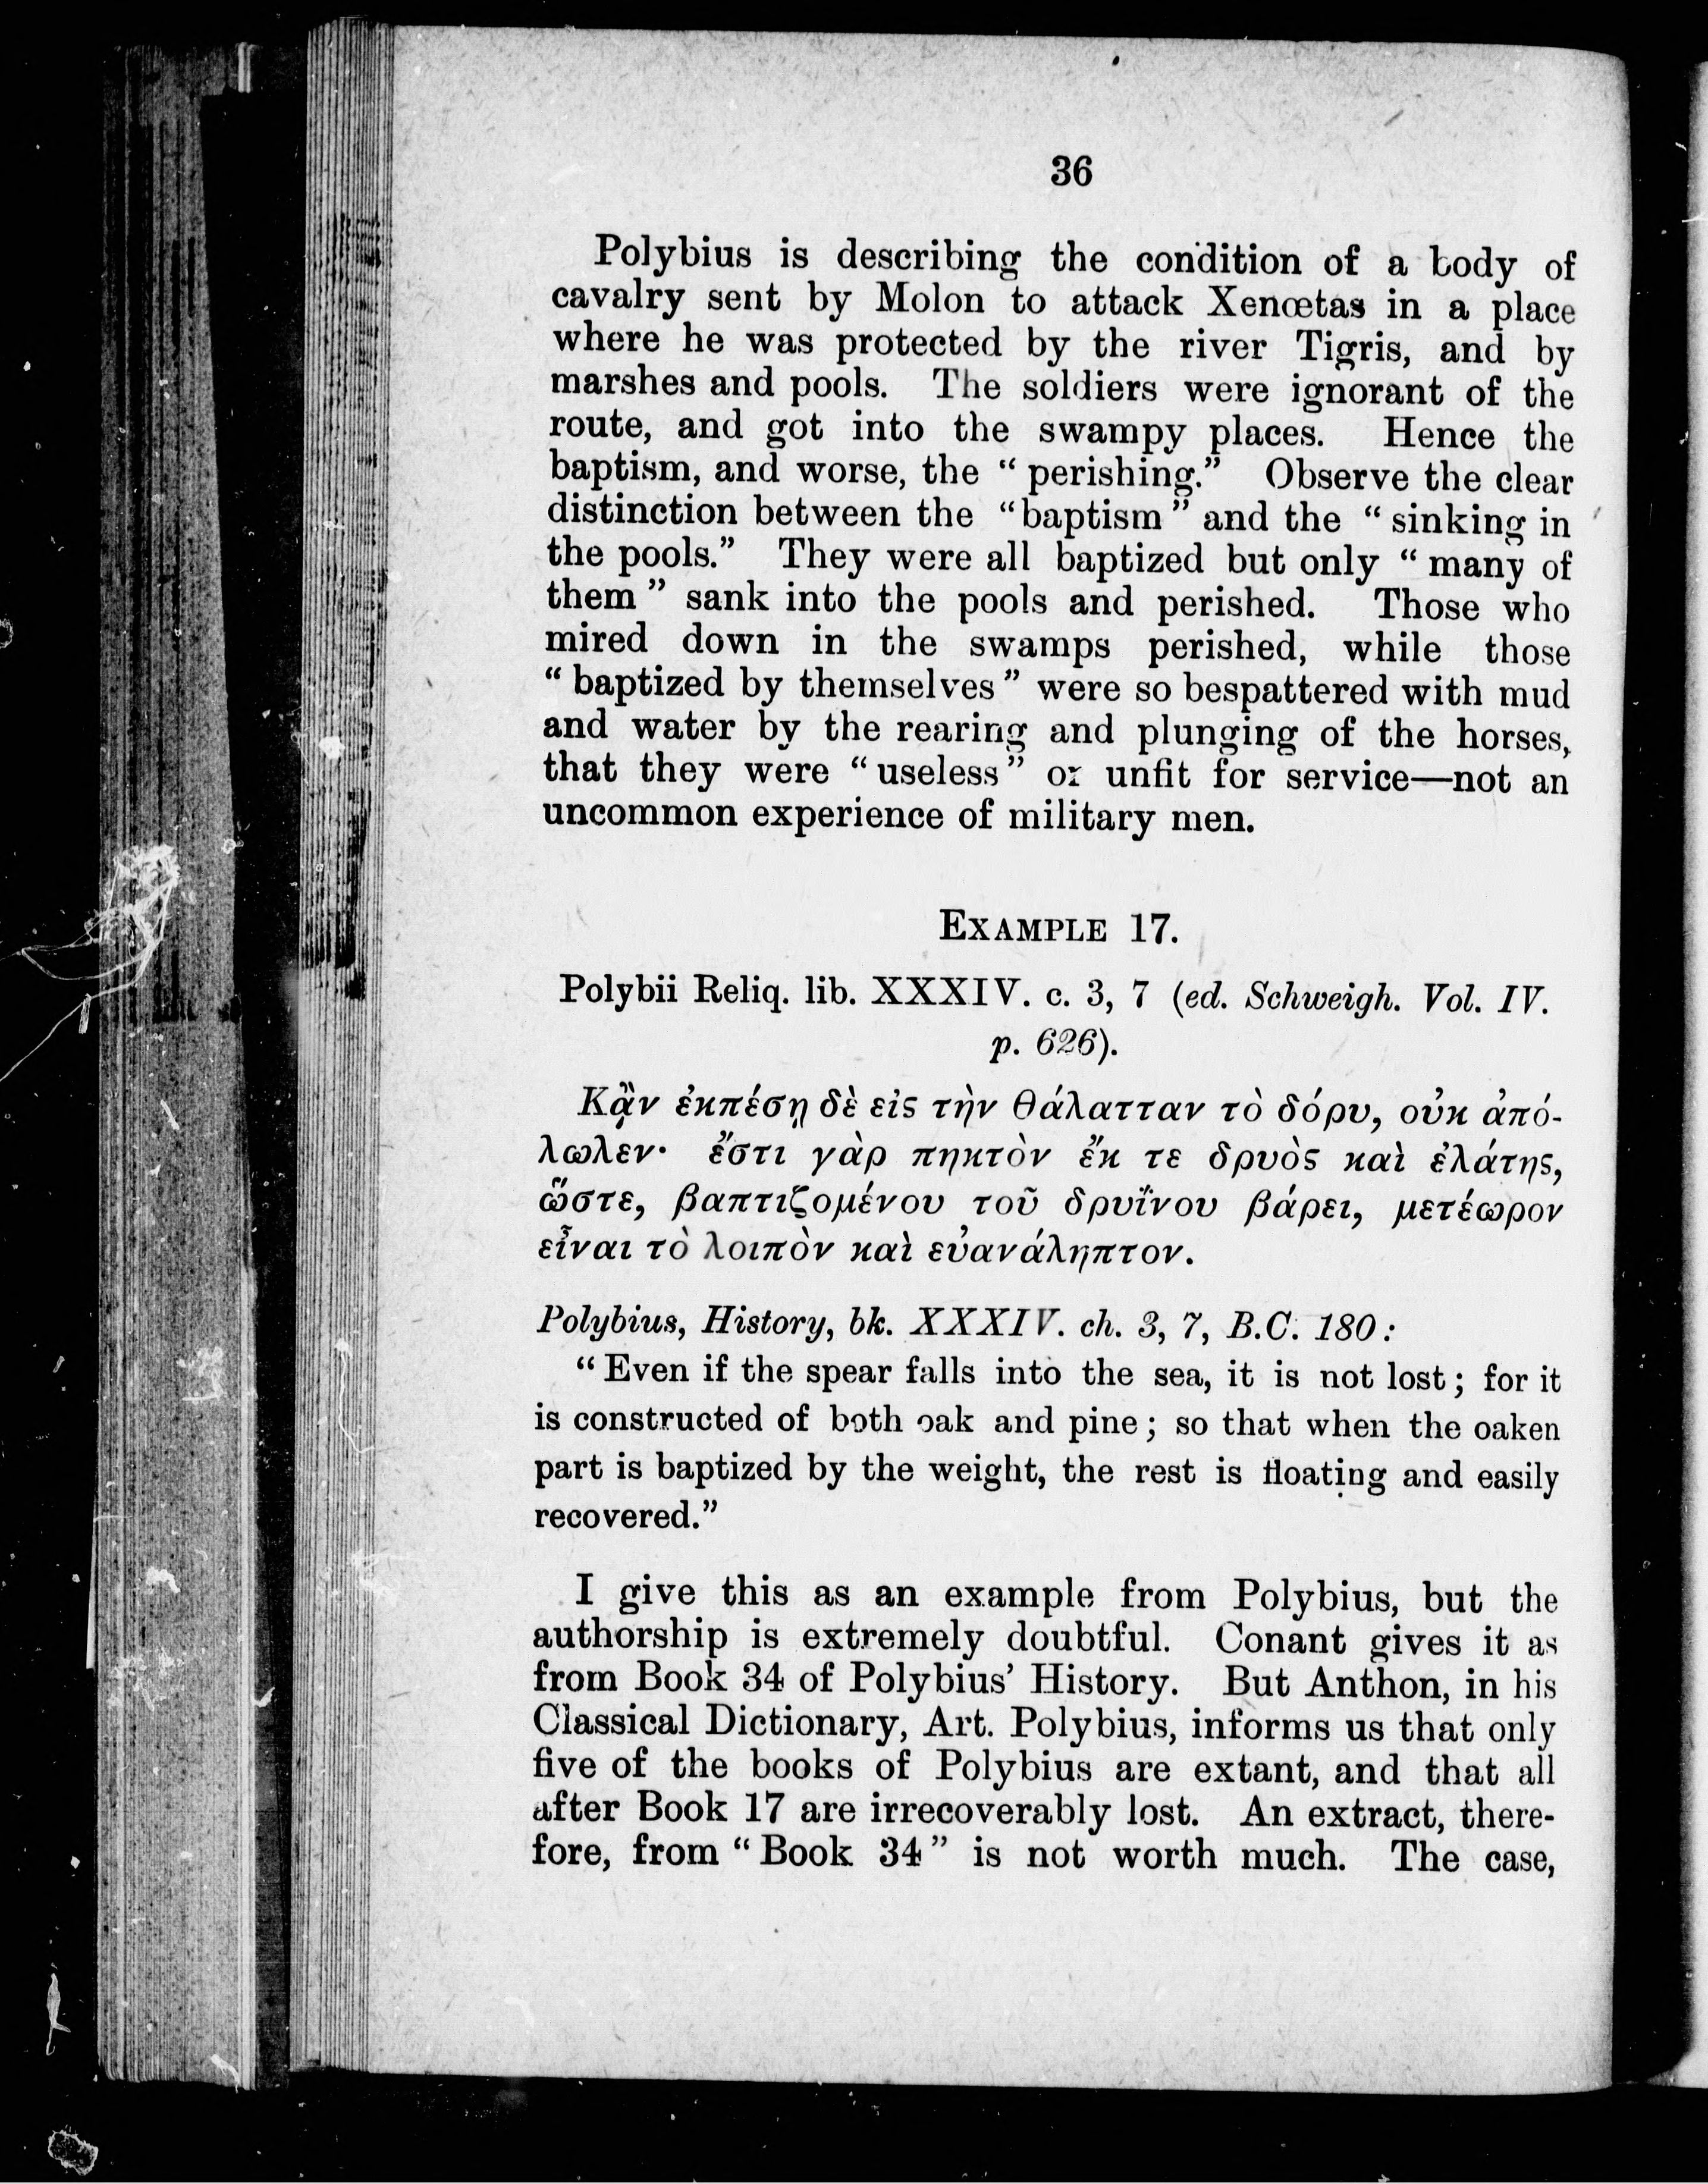 36
Polybius is describing the condition of a body of
cavalry sent by Molon to attack Xenœtas in a place
where he was protected by the river Tigris, and by
marshes and pools. The soldiers were ignorant of the
route, and got into the swampy places. Hence the
baptism, and worse, the “perishing.” Observe the clear
distinction between the “baptism” and the “sinking in
the pools.” They were all baptized but only “many of
them” sank into the pools and perished. Those who
mired down in the swamps perished, while those
“baptized by themselves” were so bespattered with mud
and water by the rearing and plunging of the horses,
that they were “useless” or unfit for service—not an
uncommon experience of military men.
EXAMPLE 17.
Polybii Reliq. lib. XXXIV. c. 3, 7 (ed. Schweigh. Vol. IV.
p. 626).
Κᾂν ἐκπέσῃ δὲ εἰς τὴν θάλατταν τὸ δόρυ, οὐκ ἀπό-
λωλεν· ἔστι γὰρ πηκτὸν ἔκ τε δρυὸς καὶ ἐλάτης,
ὥστε, βαπτιζομένου τοῦ δρυΐνου βάρει, μετέωρον
εἶναι τὸ λοιπὸν καὶ εὐανάληπτον.
Polybius, History, bk. XXXIV. ch. 3, 7, B.C. 180:
“Even if the spear falls into the sea, it is not lost; for it
is constructed of both oak and pine; so that when the oaken
part is baptized by the weight, the rest is floating and easily
recovered.”
I give this as an example from Polybius, but the
authorship is extremely doubtful. Conant gives it as
from Book 34 of Polybius’ History. But Anthon, in his
Classical Dictionary, Art. Polybius, informs us that only
five of the books of Polybius are extant, and that all
after Book 17 are irrecoverably lost. An extract, there-
fore, from “Book 34” is not worth much. The case,